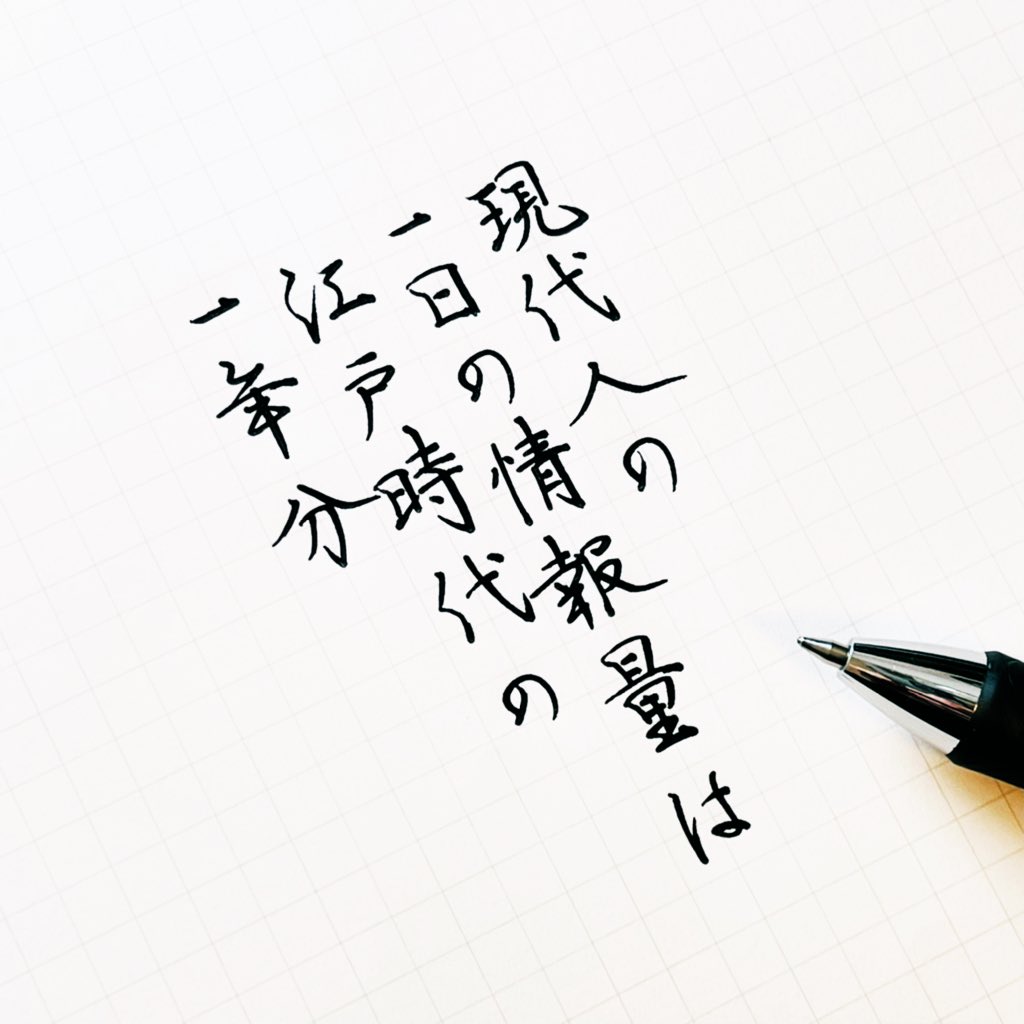 現代人の
一日の情報量は
江戸時代の
一年分